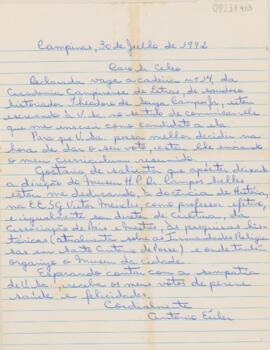 Campinas, 30 de Julho de 1992
Caro
Declarada vaga a cadeira nº 14, da
Academia Campinense de Letras, do saudoso
historiador Theodoro de Souza Campos Jr., estou
escrevendo à V. no sentido de comunicar-lhe
que me inscrevi como candidato a ela.
Para que V. possa melhor decidir na
hora de dar o seu voto, estou lhe enviando
o meu curriculum resumido.
Gostaria de salientar que após ter deixado
a direção do Museu H.P. Dr. Campos Salles
estou me dedicando à docência de História
na EESG Vitor Meireles, como professor efetivo,
e igualmente sou diretor de Cultura, da
Associação de Pais e Mestres, às pesquisas his-
tóricas (atualmente sobre as Irmandades Religio-
sas em
organizo o Museu da Cidade.
Esperando contar com a simpatia
de V. receba os meus votos de perene
saúde e felicidade.
Cordialmente
Antonio Euler